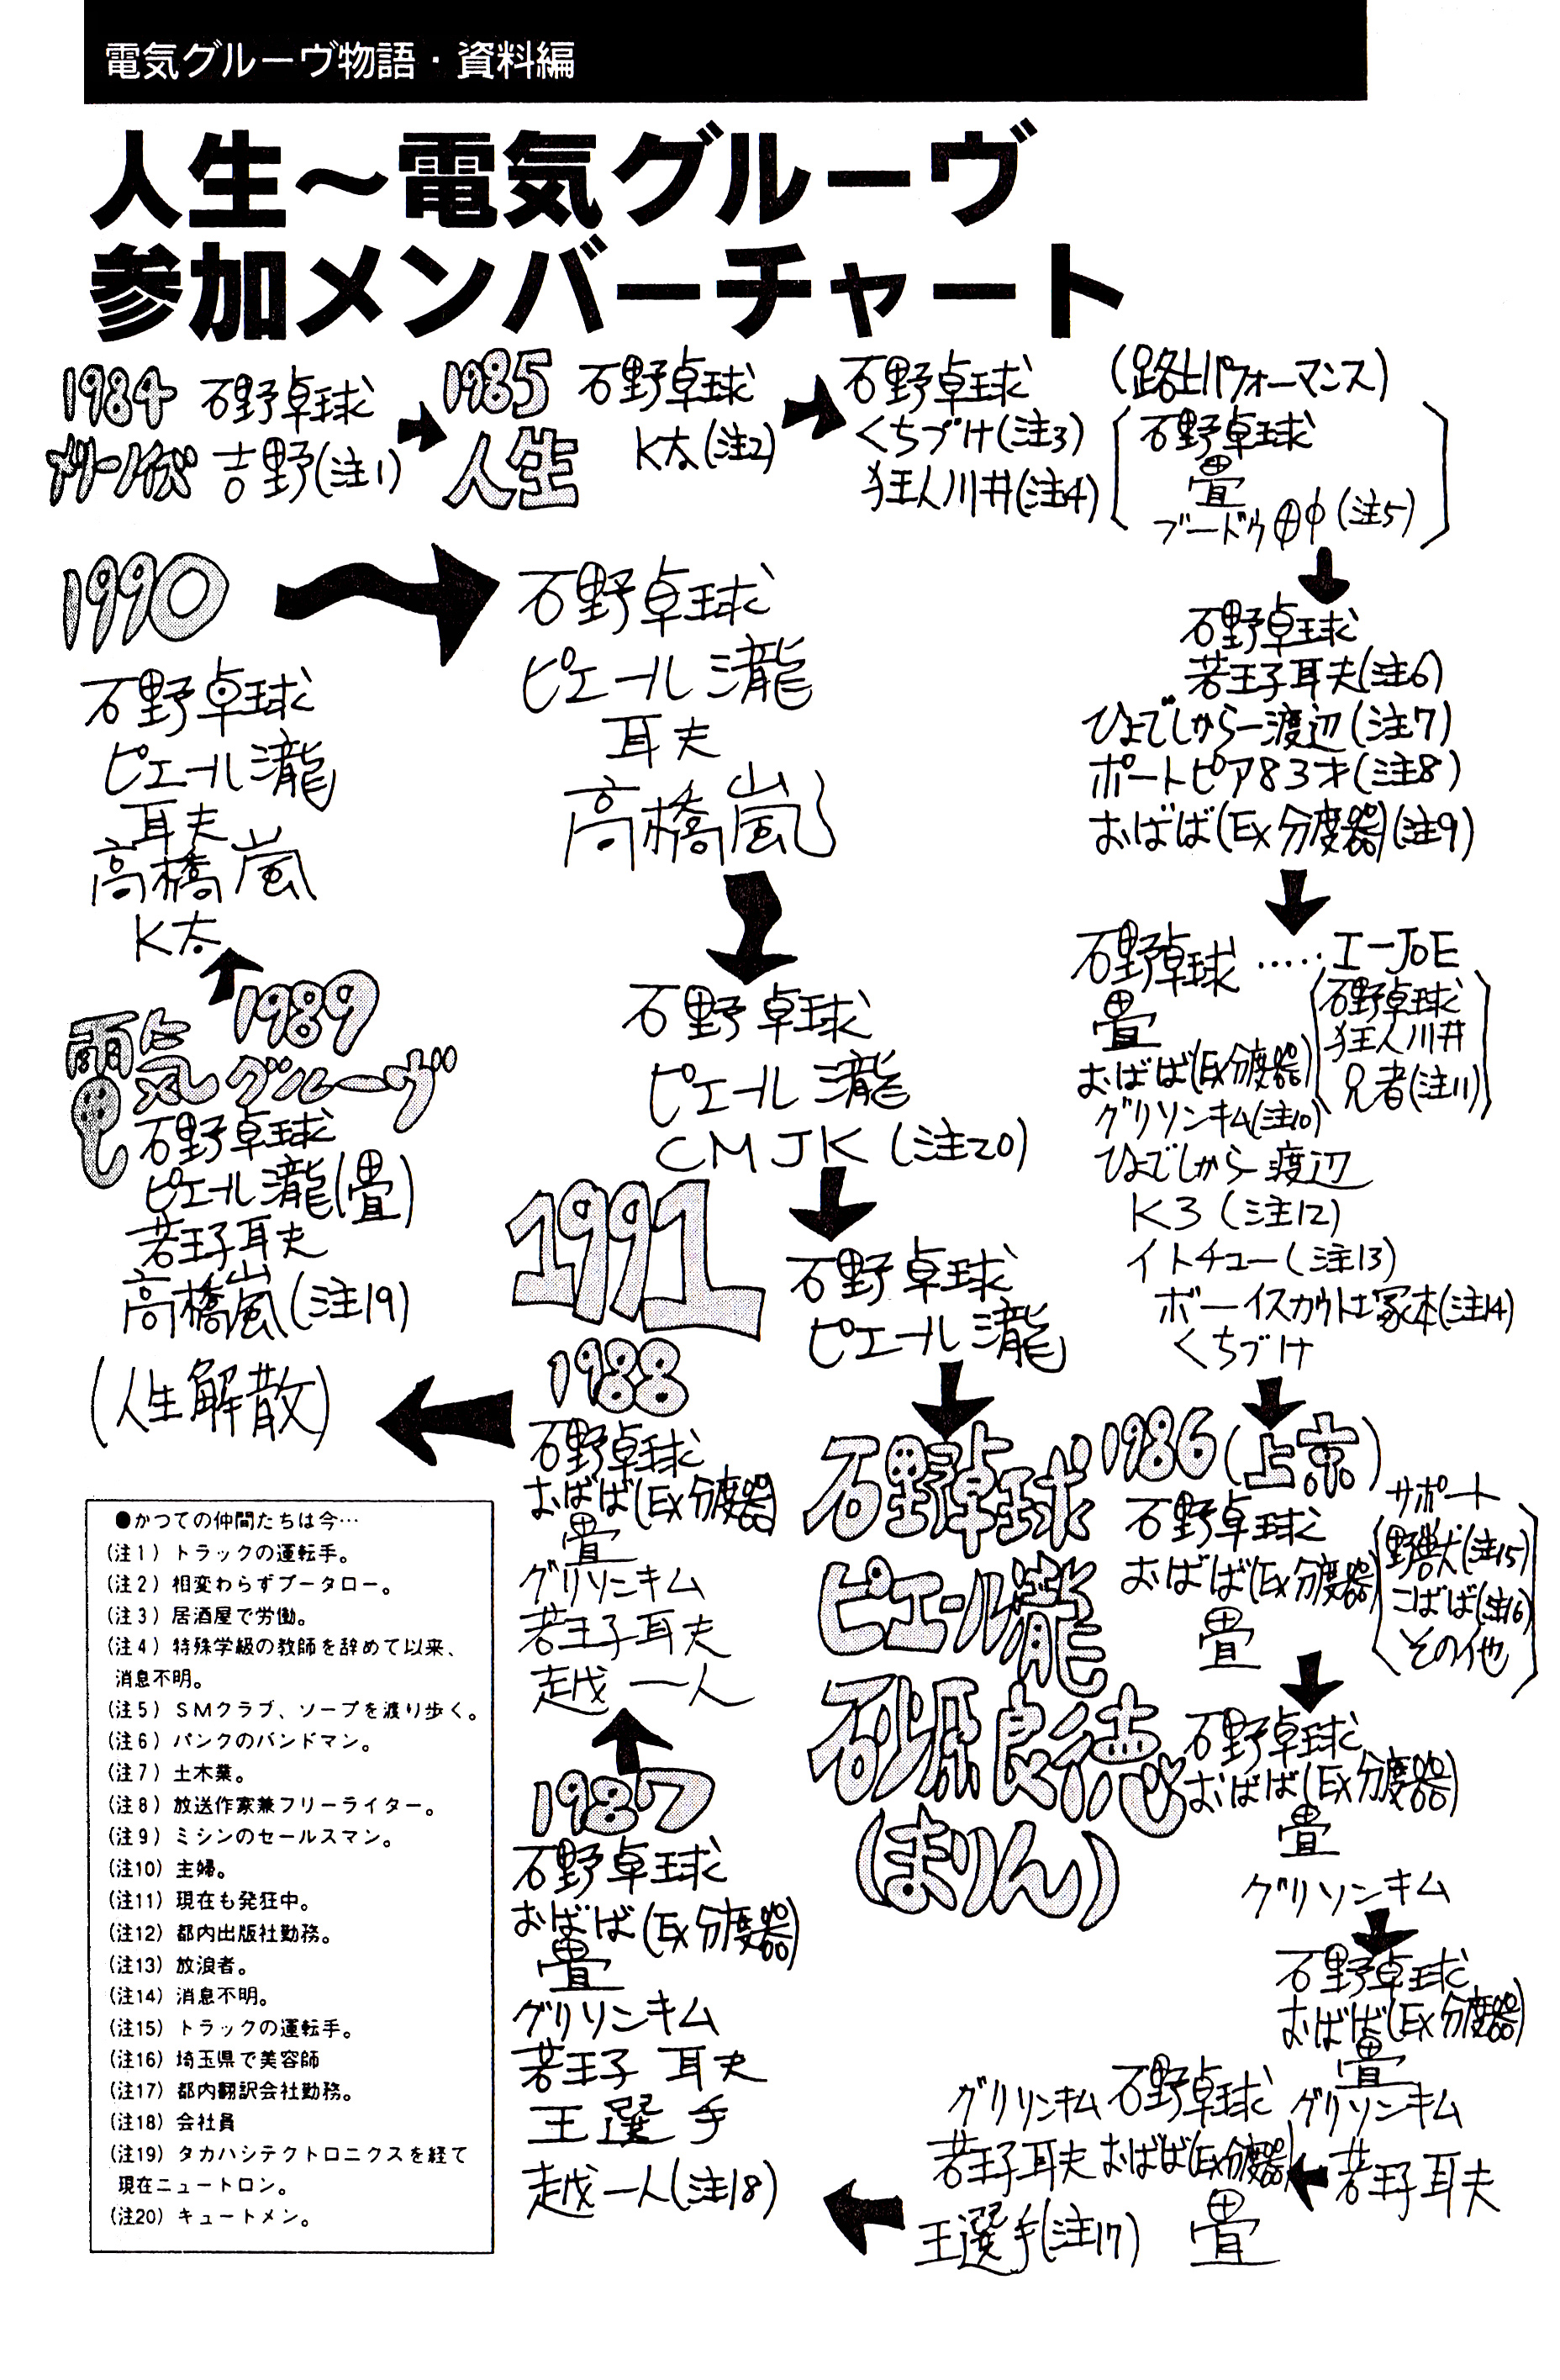 電気グルーヴ物語・資料編
人生～電気グルーヴ
参加メンバーチャート
1984
メリーノイズ
石野卓球
吉野(注1)
1985
人生
石野卓球
K太(注2)
石野卓球
くちづけ(注3)
狂人川井(注4)
(路上パフォーマンス)
石野卓球
畳
ブードゥ田中(注5)
石野卓球
若王子耳夫(注6)
ひょでしから一渡辺(注7)
ポートピア83才(注8)
おばば(Ex分度器)(注9)
石野卓球……I-JOE
畳
おばば(Ex分度器)
グリソンキム(注10)
ひょでしから一渡辺
K3(注12)
イトチュー(注13)
ボーイスカウト塚本(注14)
くちづけ
石野卓球
狂人川井
兄者(注11)
1986(上京)
石野卓球
おばば(Ex分度器)
畳
サポート
野獣(注15)
こばば(注16)
その他
石野卓球
おばば(Ex分度器)
畳
グリソンキム
石野卓球
おばば(Ex分度器)
畳
グリソンキム
若王子耳夫
石野卓球
おばば(Ex分度器)
畳
グリソンキム
若王子耳夫
王選手(注17)
1987
石野卓球
おばば(Ex分度器)
畳
グリソンキム
若王子耳夫
王選手
越一人(注18)
1988
石野卓球
おばば(Ex分度器)
畳
グリソンキム
若王子耳夫
越一人
(人生解散)
1989
電気グルーヴ
石野卓球
ピエール瀧(畳)
若王子耳夫
高橋嵐(注19)
1990
石野卓球
ピエール瀧
耳夫
高橋嵐
K太
石野卓球
ピエール瀧
耳夫
高橋嵐
石野卓球
ピエール瀧
CMJK(注20)
1991
石野卓球
ピエール瀧
石野卓球
ピエール瀧
砂原良徳
(まりん)
●かつての仲間たちは今…
(注1) トラックの運転手。
(注2) 相変わらずプータロー。
(注3) 居酒屋で労働。
(注4) 特殊学級の教師を辞めて以来、
消息不明。
(注5) SMクラブ、ソープを渡り歩く。
(注6) パンクのバンドマン。
(注7) 土木業。
(注8) 放送作家兼フリーライター。
(注9) ミシンのセールスマン。
(注10) 主婦。
(注11) 現在も発狂中。
(注12) 都内出版社勤務。
(注13) 放浪者。
(注14) 消息不明。
(注15) トラックの運転手。
(注16) 埼玉県で美容師
(注17) 都内翻訳会社勤務。
(注18) 会社員
(注19) タカハシテクトロニクスを経て
現在ニュートロン。
(注20) キュートメン。